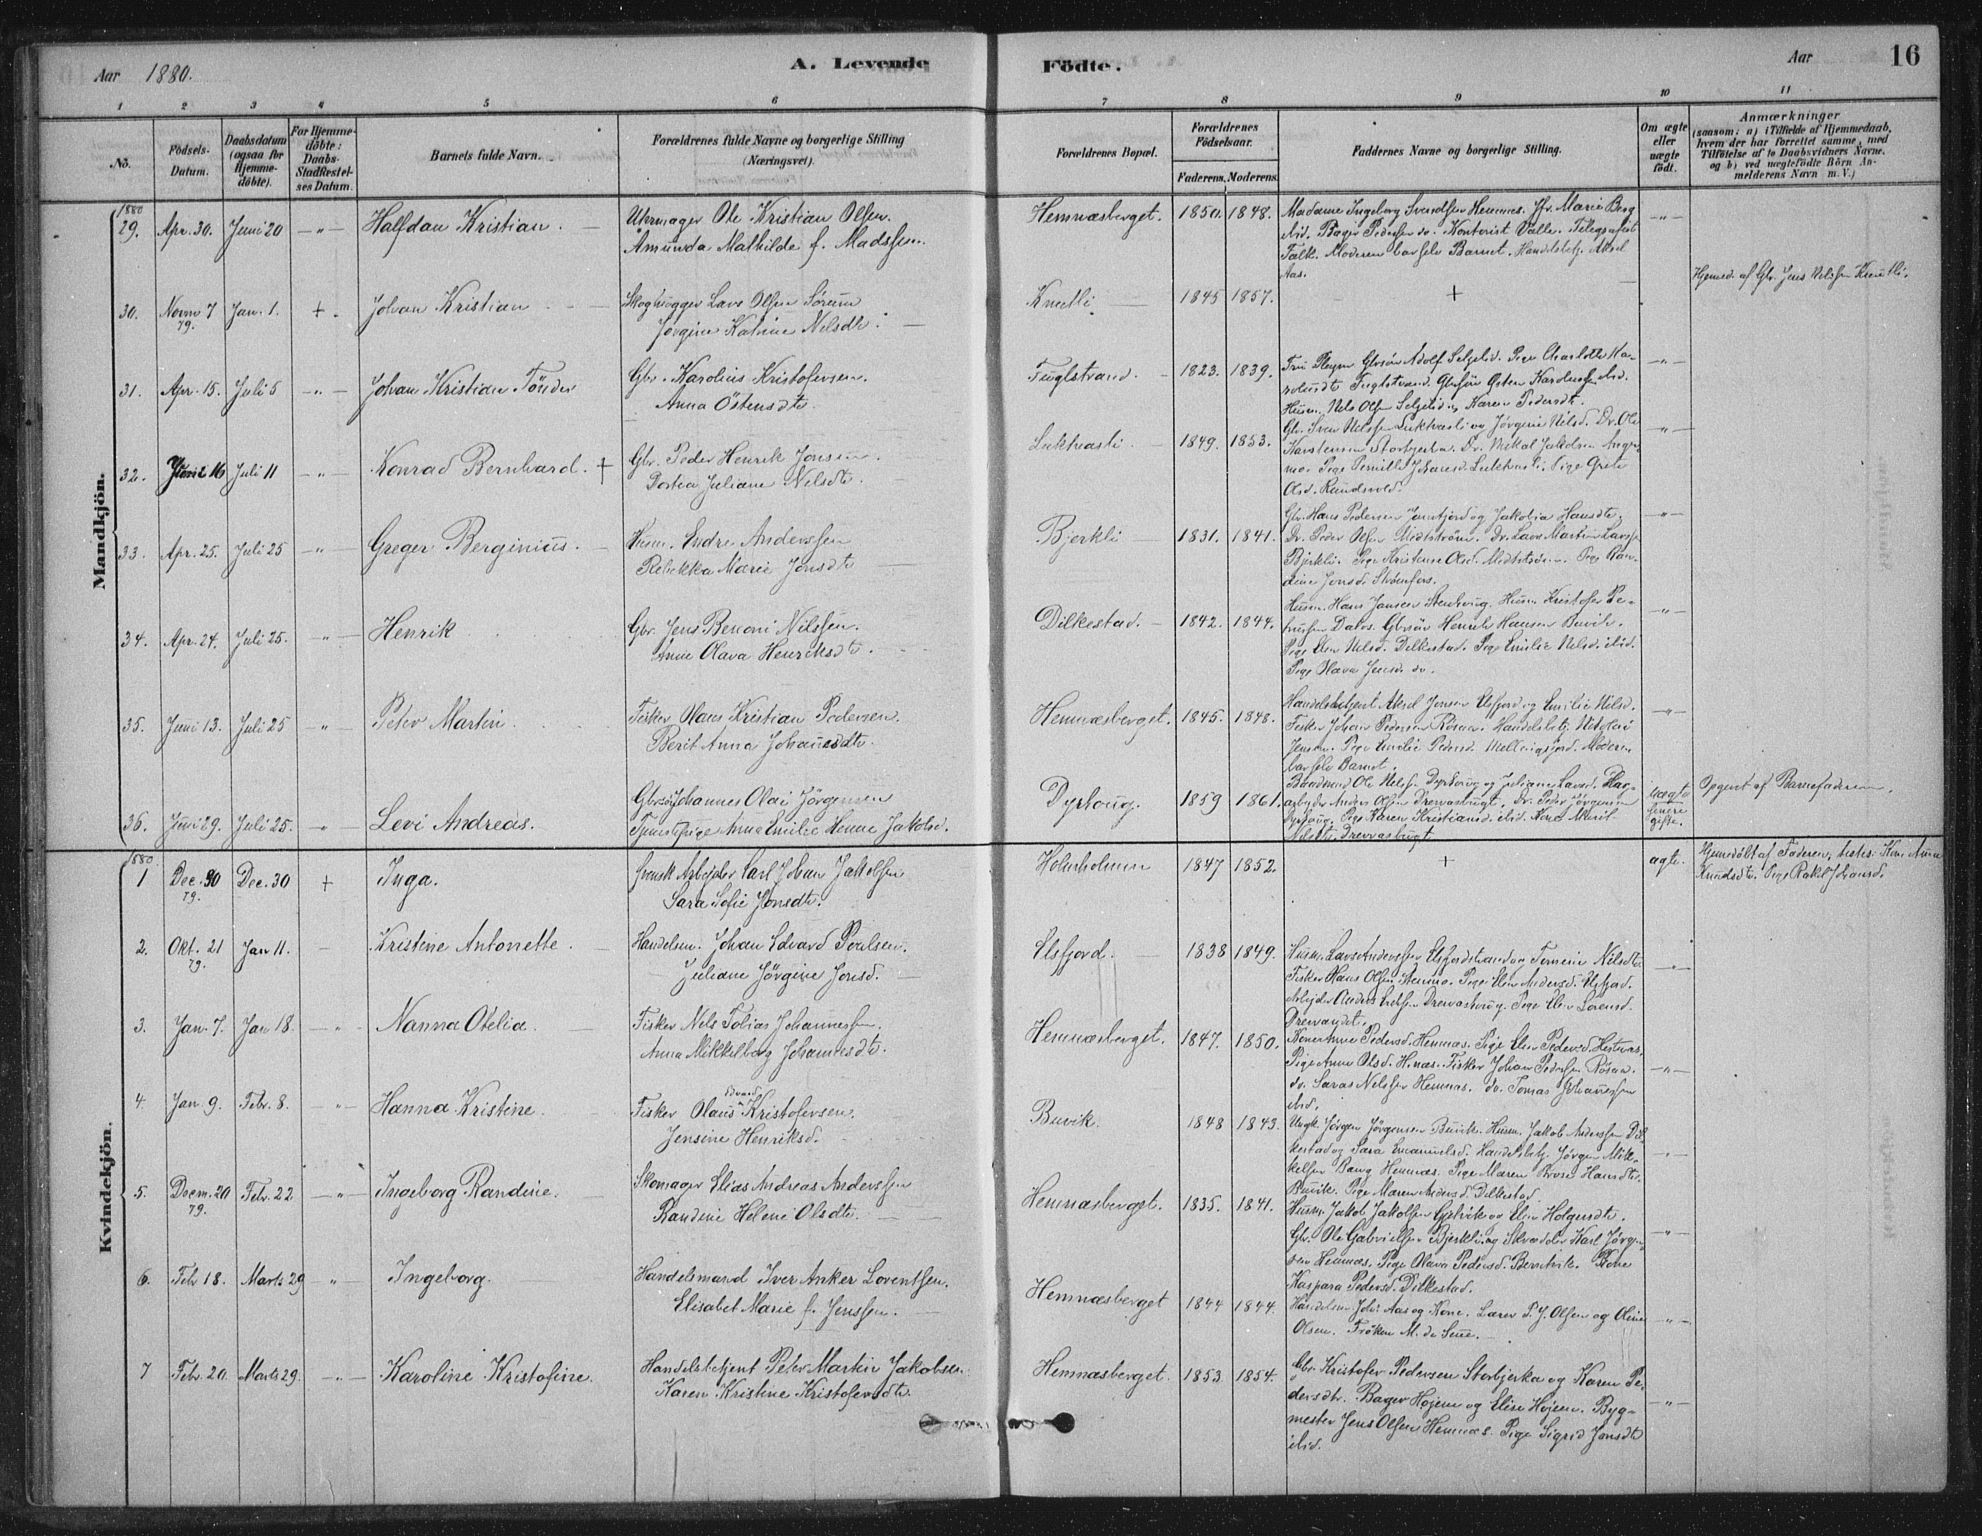 Aar 1880.
A. Levende
Födte.
Aar
16
1 2 3 4 5 6 7 8 9 10 11
No.
Födsels-
Datum.
Daabsdatum
(ogsaa for
Hjemme-
döbte).
For Hjemme-
döbte:
Daabs-
Stadfæstel-
ses Datum.
Barnets fulde Navn.
Forældrenes fulde Navne og borgerlige Stilling
(Næringsvei).
Forældrenes Bopæl.
Forældrenes
Födselsaar.
Faderens. Moderens.
Faddernes Navne og borgerlige Stilling.
Om ægte
eller
uægte
födt.
Anmærkninger
(saasom: a) i Tilfælde af Hjemmedaab,
hvem der har forrettet samme, med
Tilföielse af to Daabsvidners Navne.
og b) ved uægtefödte Börn An-
melderens Navn m. V.)
Mandkjön.
1880
29. Apr. 30. Juni 20 Halfdan Kristian.
Urmager Ole Kristian Olsen.
Amunda Mathilde f. Madssen.
Hemnæsberget. 1850. 1848.
Madame Ingeborg Svendsen Hemnæs. Marie Berg
ibid. Bager Pedersen do. Kontorist Valle. Telegrafist
Falk. Moderen bar selv Barnet. Handelsbetj. Aksel
Aas.
30. Novm 7 79. Jan. 1. + Johan Kristian
Skoghugger Lars Olsen Sörum
Jörgine Katrine Nelsdtr.
Knutli 1845 1857. +
Hjemd. af Gbr. Jens Nelssen Knutli.
31. Apr. 15. Juli 5 Johan Kristian Tönder
Gbr. Karolius Kristofersen.
Anna Östensdtr.
Fuglstrand. 1823. 1839.
Gbrsön Adolf Seljelid. Pige Charlotte Ka-
Fuglstrand. Gbrsön Östen ibid.
Husm. Nels Olsen Seljelid og Karen Pedersdtr.
32. Juni 16 Juli 11 Konrad Bernhard. +
Gbr. Peder Henrik Jonsen
Portia Juliane Nelsdtr.
Luktvasli 1849. 1853.
Gbr. Sven Nelssen Luktvasli og Jörgine Nilsd. Dr. Ole
Karstensen Storbjerka. Dr. Mikal Jakobsen
Pige Pernille Luktvasli. Pige Grete
Olsd. Rundvold.
33. Apr. 25. Juli 25 Greger Berginius.
Husm. Endre Anderssen
Rebekka Marie Jonsdtr
Bjerkli 1831. 1841.
Gbr. Hans Pedersen og Jakobia Hansdtr.
Dr. Peder Olsen Dr. Lars Martin Larss
Bjerkli. Pige Kristense Olsd. Pige Ran-
dine Jonsd.
34. Apr. 24. Juli 25. Henrik
Gbr. Jens Benoni Nilssen.
Anne Olava Henriksdtr.
Dilkestad. 1842. 1844.
Husm. Hans Jansen Husm. Kristofer Pe-
Gbrsön Henrik Hansen Buvik.
Pige Elen Nelsd. Dilkestad. Pige Emilie Nelsd. ibid.
Pige Olava Jensd. do.
35. Juni 13. Juli 25 Peter Martin.
Fisker Olaus Kristian Pedersen.
Berit Anna Johannesdtr.
Hemnæsberget. 1845. 1848.
Handelsbetjent Aksel Jensen Elsfjord og Emilie Nilsd.
Fisker Johan Pedersen RöSaa. Handelsbetj. Nikolai
Jensen. Pige Emilie Pedersd. Moderen
bar selv Barnet.
36. Juni 29. Juli 25. Levi Andreas.
Gbrsön Johannes Olai Jörgensen
Tjenestpige Anna Emilie Henne Jakobsd.
Dyrhaug. 1859 1861.
Ole Nelss. Dyrhaug og Juliane Larsd. Dag-
arbeider Anders Olsen Drevvasbugt. Dr. Peder Jörgensen
Dyrhaug. Pige Karen Kristiansd. ibid. Kone
Nelsdtr. Drevvasbugt
uægte
senere
gifte.
Opgivet af Barnefaderen.
Kvindekjön.
1880
1 Dec. 30 79. Dec. 30 + Inga.
svensk Arbejder Karl Johan Jakobsen
Sara Sofie Jonsdtr.
Holmholmen 1847 1852. + ægte.
Hjemdöbt af Faderen, testes: Kone Anna
Knudsdtr. Pige Rakel Johansd.
2. Okt. 21 79. Jan 11. Kristine Antonette.
Handelsm. Johan Edvard Poulsen.
Juliane Jörgine Jonsd.
Elsfjord. 1838 1849.
Husm. Lars Anderssen Elsfjordstrand og Tomine Nilsdtr.
Fisker Hans Olsen Stenmo. Pige Elen Andersd. Elsfjord.
Arbejder Anders Drevvasbugt. Pige Elen Lorensd.
Drevvandet.
3. Jan. 7. Jan 18. Nanna Otelia.
Fisker Nels Tobias Johannessen.
Anna Mikkelborg Johannesdtr.
Hemnæsberget. 1847. 1850.
Kone Anne Pedersd. Hemnæs. Pige Elen Pedersd.
Pige Anne Olsd. Hemnæs. Fisker Johan Pedersen Rösaa.
do. Saras Nelssen Hemnæs. do. Tomas Johannessen
ibid.
4. Jan. 9. Febr. 8. Hanna Kristine
Edvard
Fisker Olaus Kristofersen.
Jensine Henriksd.
Buvik. 1848 1843.
Ungk. Jörgen Jörgensen Buvik. Husm. Jakob Anderssen Dil-
kestad og Sara Emanuelsd. Handelsbetj. Jörgen Mik-
kelsen Bang Hemnæs. Pige Maren Hansdtr.
Buvik. Pige Maren Andersd. Dilkestad.
5. Decm. 20 79. Febr. 22 Ingeborg Randine.
Skomager Elias Andreas Anderssen
Randine Helene Olsdtr.
Hemnæsberget. 1835. 1841.
Husm. Jakob Jakobsen og Elen Holgersdtr.
Gbr. Ole Gabrielsen Bjerkli og Skrædder Karl Jörgen-
sen Hemnæs. Pige Olava Pedersd. Kone
Kaspara Pedersd. Dilkestad.
6. Febr 18. Marts 29 Ingeborg.
Handelsmand Iver Anker Lorentsen.
Elisabet Marie f. Jenssen.
Hemnæsberget 1844 1844.
Handelsm. Joh. Aas og Kone. Lærer P. J. Olsen og Oline
Olsen. Fröken M. de Seue.
7 Febr. 20. Marts 29. Karoline Kristofine.
Handelsbetjent Peter Martin Jakobsen.
Karen Kristine Kristofersdtr.
Hemnæsberget. 1853 1854.
Gbr. Kristofer Pedersen Storbjerka og Karen Pe-
dersdtr. Bager Højem og Elise Højem. Byg-
mester Jens Olsen Hemnæs. Pige Sigrid Jonsdtr
ibid.